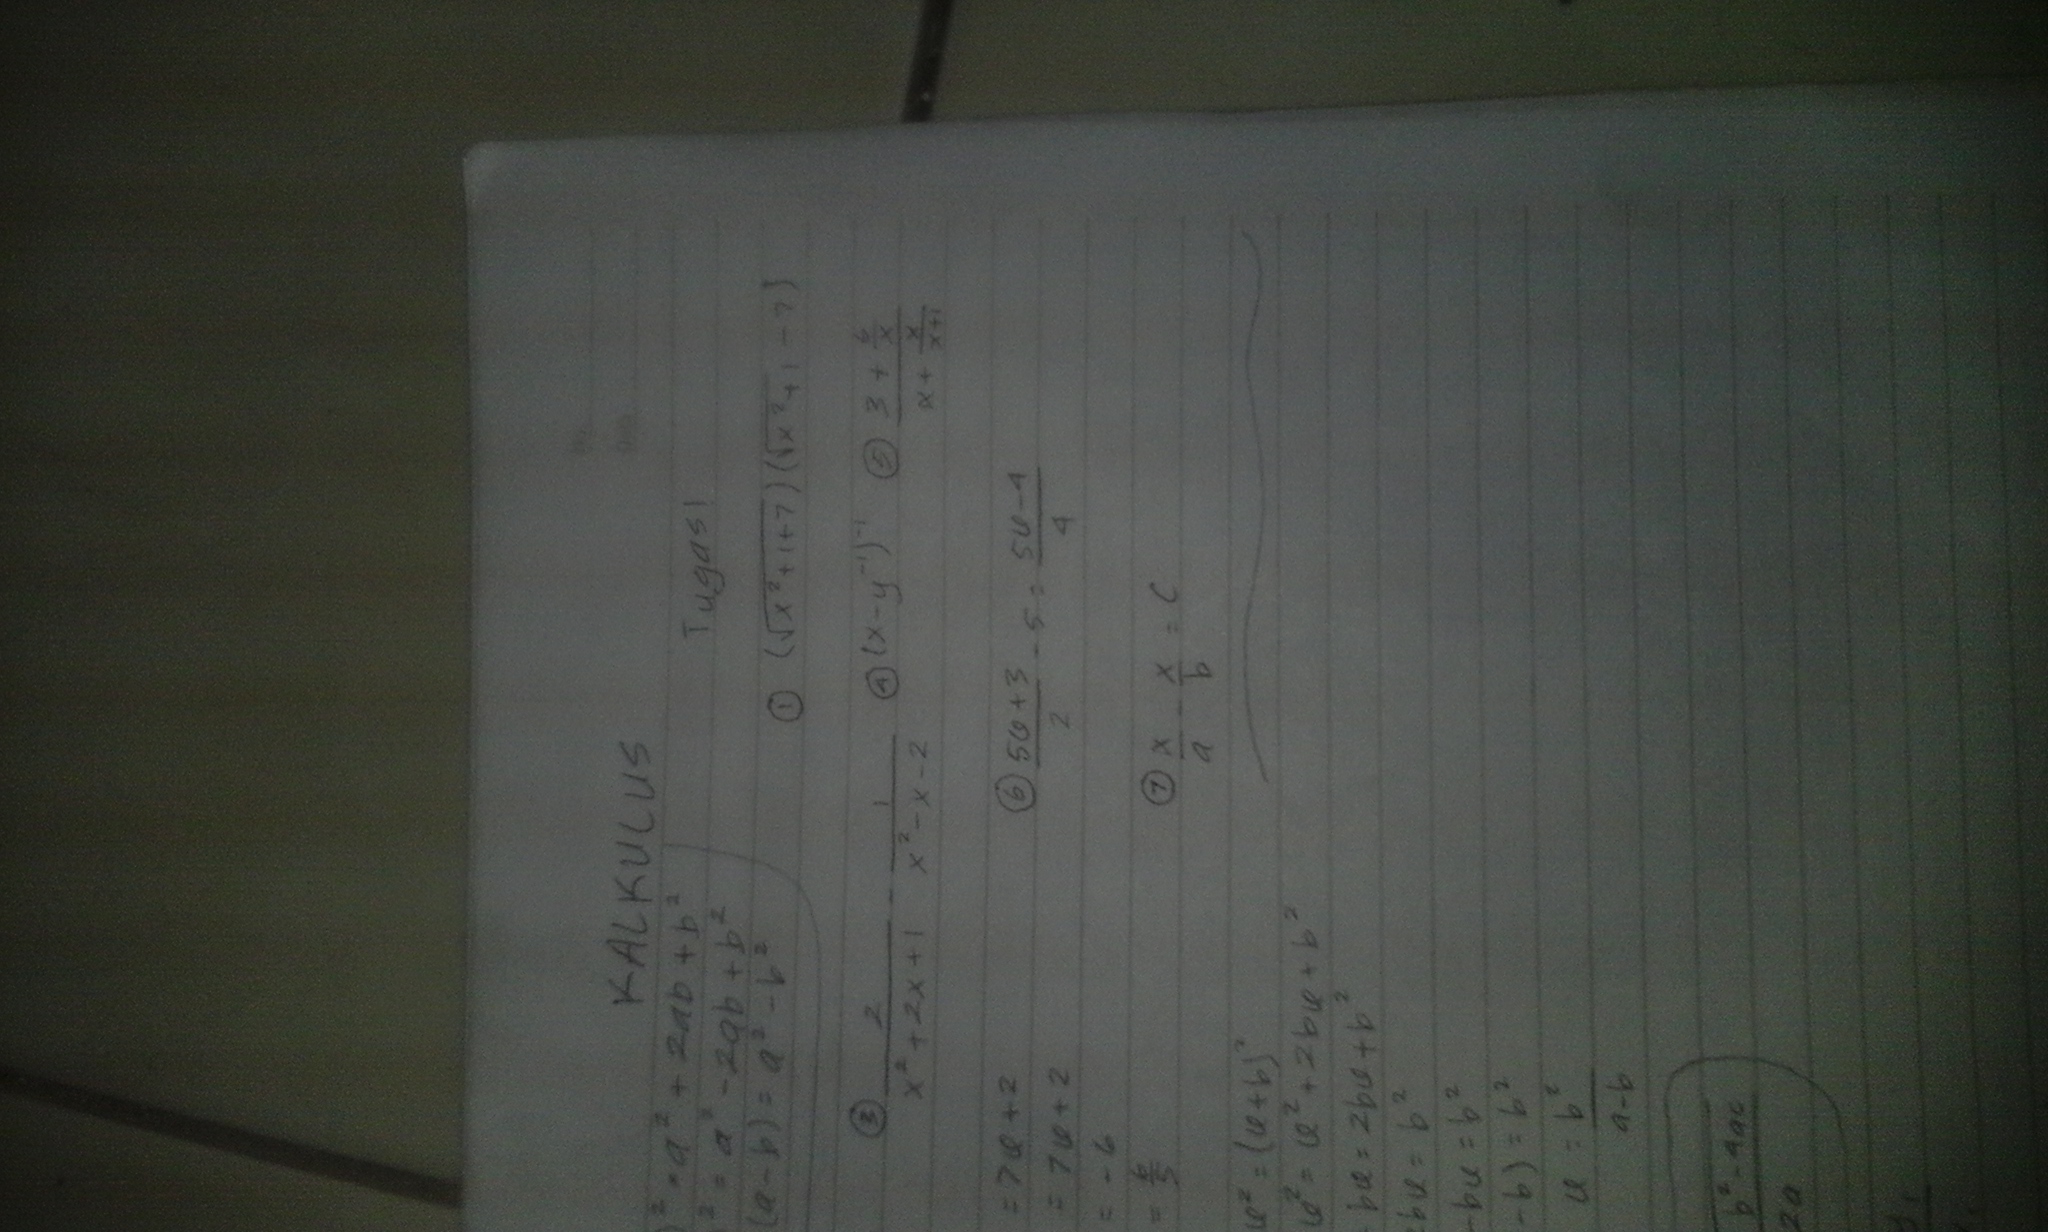 KALKULUS
)² = a² + 2ab + b²
² = a² - 2ab + b²
(a-b) = a² - b²
Tugas!
① (√x²+1+7)(√x²+1 - 7)
③ 2/(x²+2x+1) - 1/(x²-x-2)
④ (x-y⁻¹)⁻¹
⑤ (3 + 6/x)/(x + x/(x+1))
= 7u + 2
= 7u + 2
= -6
= 6/5
⑥ (5u+3)/2 - 5 = (5u-4)/4
⑦ x/a - x/b = C
u² = (u+b)²
u² = u² + 2bu + b²
bu = 2bu + b²
2bu = b²
-bu = b²
-b) = b²
u = b²/(a-b)
b²-4ac
2a